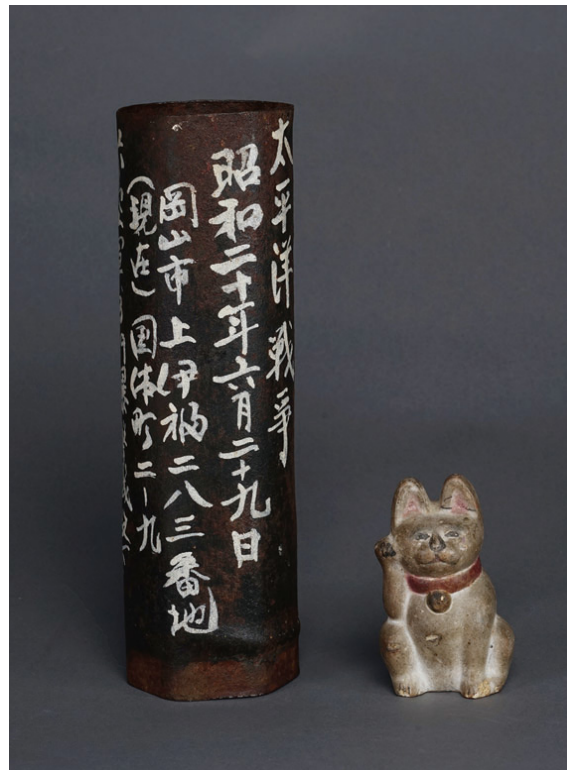 太平洋戦争
昭和二十年六月二十九日
岡山市上伊福二八三番地
(現在)国体町二-九